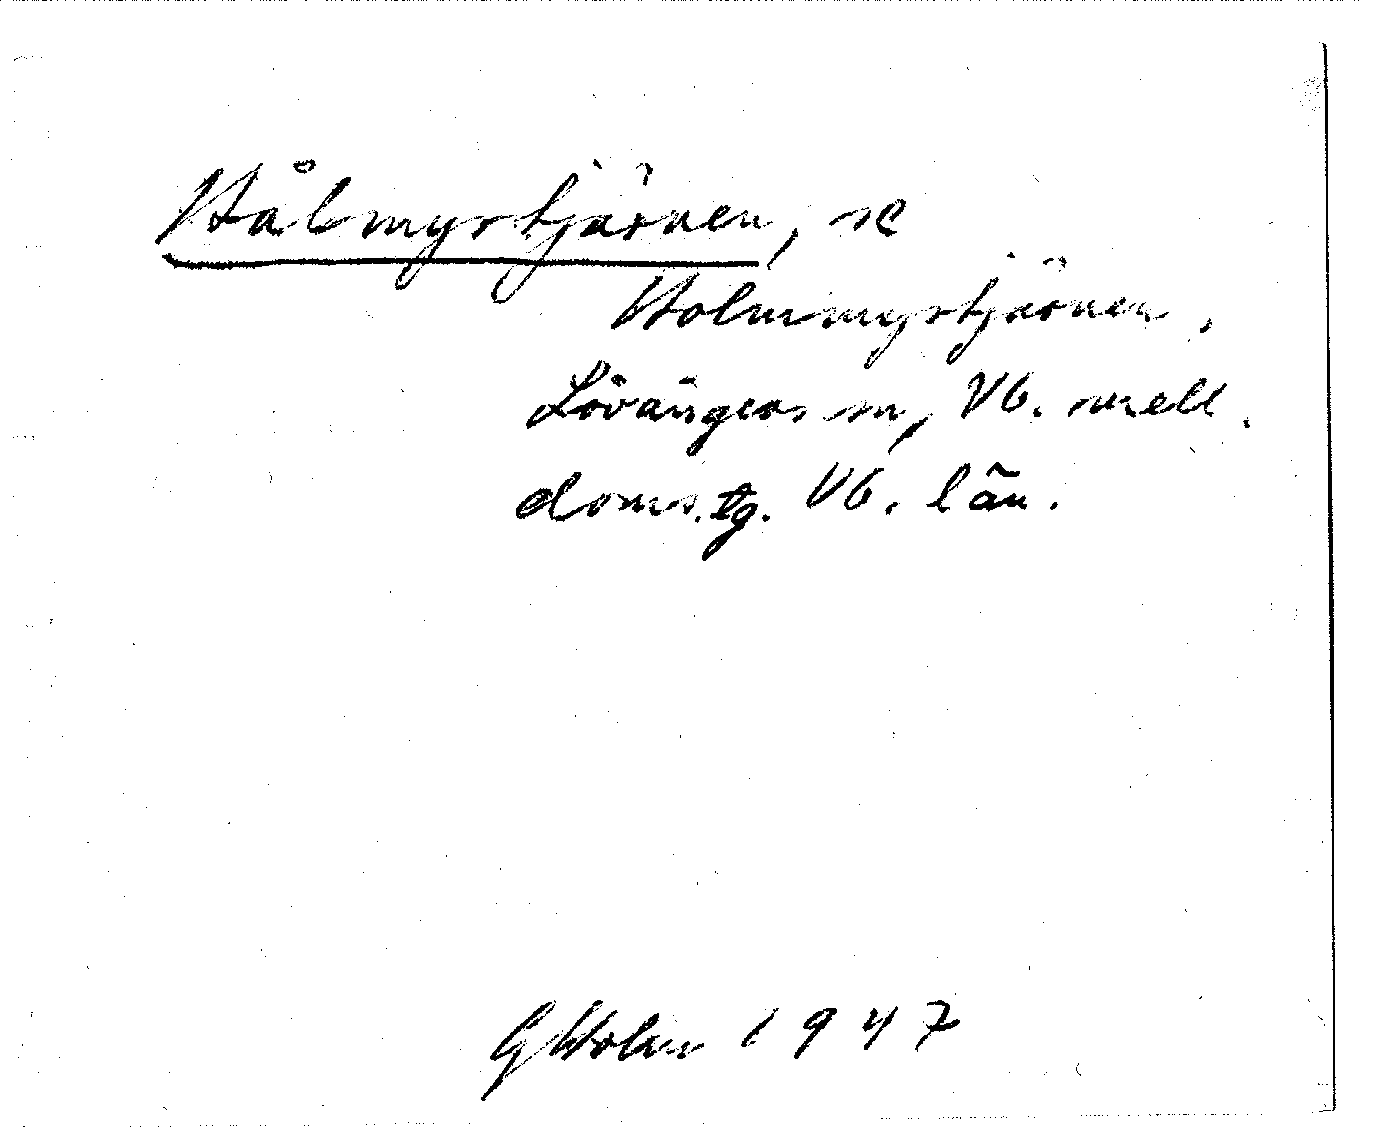 Hålmyrtjärnen, se
Holmmyrtjärnen,
Lövångers sn, Vb. mell.
doms.tg. Vb. län.
G Holm 1947